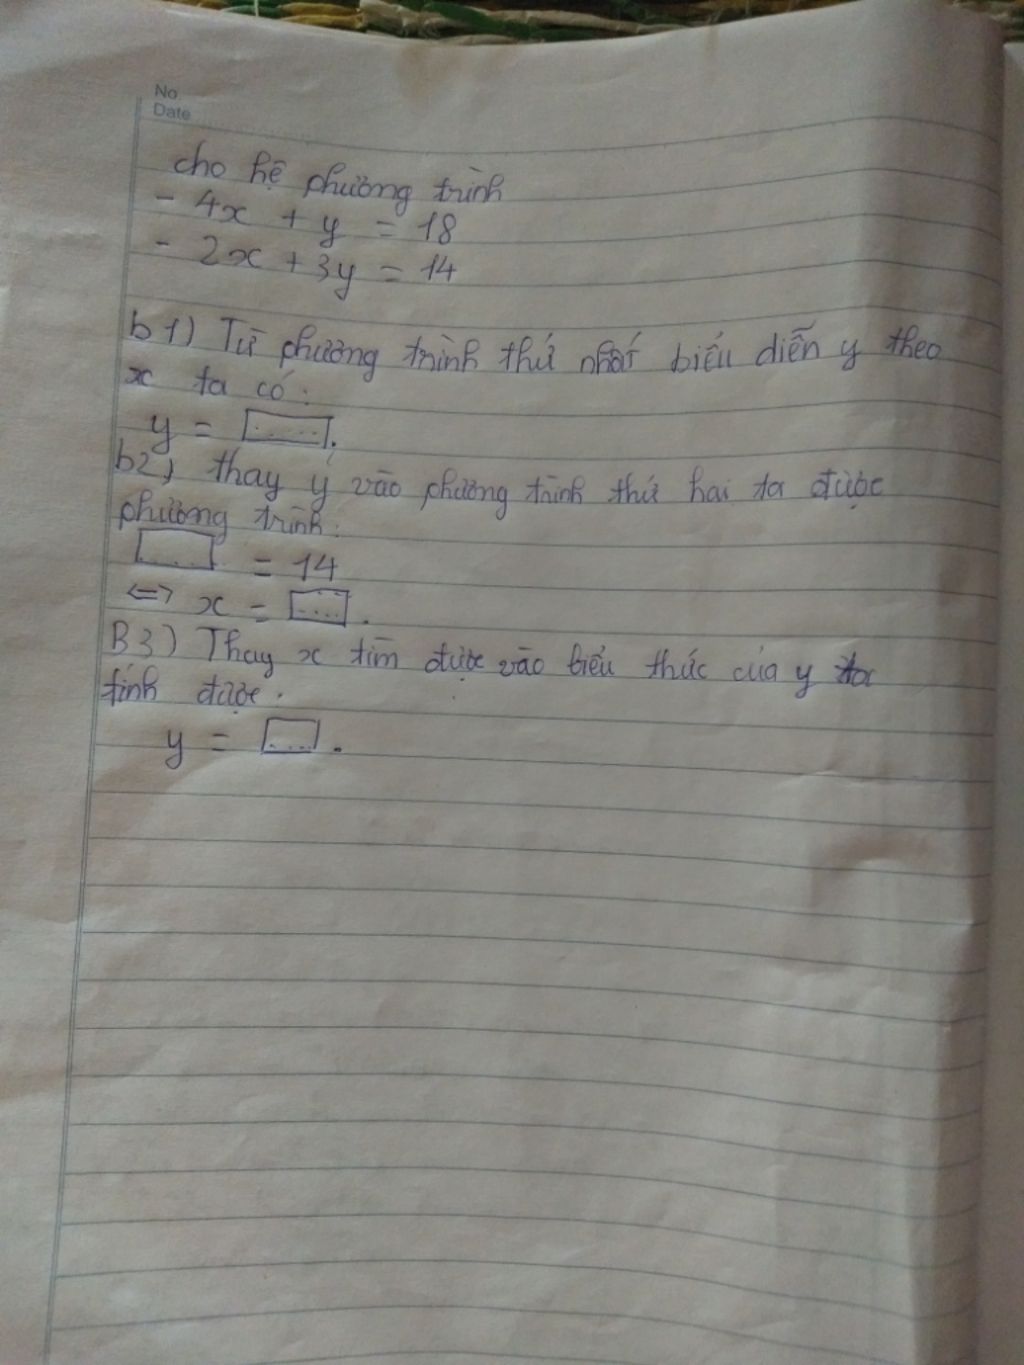 No
Date
cho hệ phương trình
- 4x + y = 18
- 2x + 3y = 14
b1) Từ phương trình thứ nhất biểu diễn y theo
x ta có:
y = [.....].
b2) thay y vào phương trình thứ hai ta được
phương trình:
[....] = 14
<=> x = [....].
B3) Thay x tìm được vào biểu thức của y ta
tính được.
y = [....].